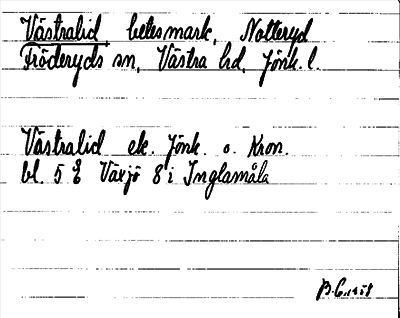 Västralid betesmark, Notteryd
Fröderyds sn, Västra hd, Jönk. l.
Västralid ek. Jönk. o. Kron.
bl. 5 Växjö 8 i Inglamåla